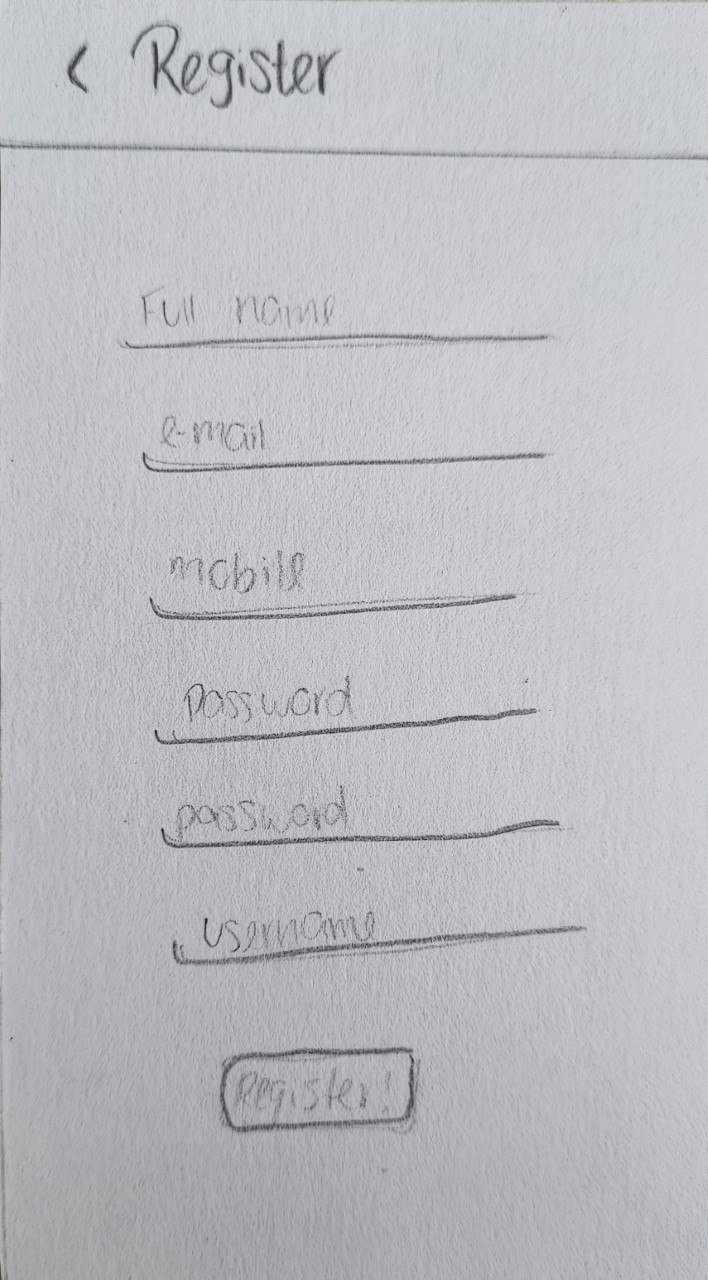 < Register
Full name
e-mail
mobile
password
password
username
Register!